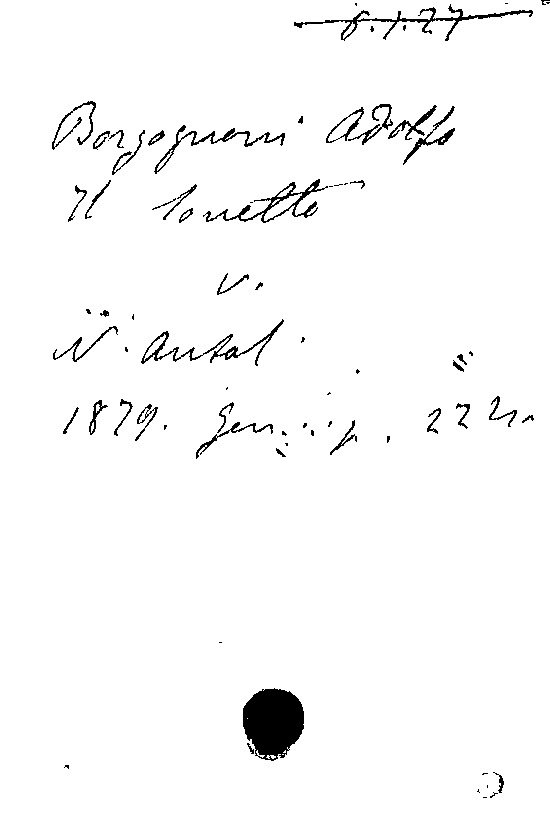 6.1.27
Borgognoni Adolfo
Il Sonetto
v.
N. Antol.
1879. Gen. p.